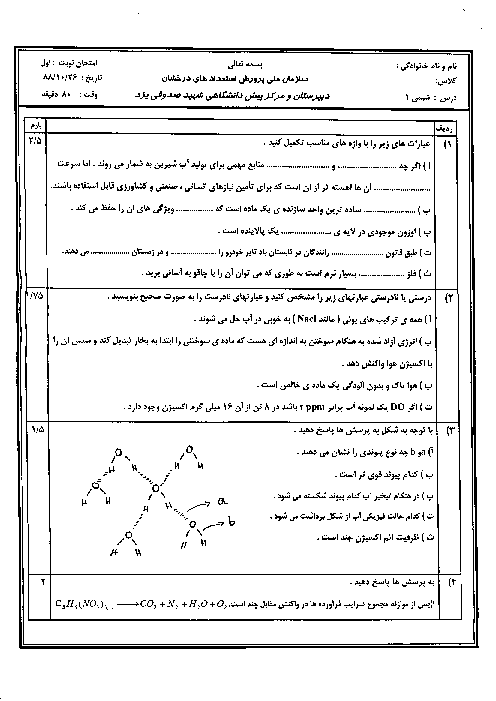 بسمه تعالی
نام و نام خانوادگی :
سازمان ملی پرورش استعدادهای درخشان
امتحان نوبت : اول
کلاس:
دبیرستان و مرکز پیش دانشگاهی شهید صدوقی یزد
تاریخ : ۸۸/۱۰/۲۶
درس : شیمی ۱
وقت : ۸۰ دقیقه
ردیف
بارم
۱) عبارت های زیر را با واژه های مناسب تکمیل کنید .
۲/۵
آ ) اگر چه .................... و .................... منابع مهمی برای تولید آب شیرین به شمار می روند . اما سرعت
.................... آن ها آهسته تر از آن است که برای تأمین نیازهای انسانی ، صنعتی و کشاورزی قابل استفاده باشند.
ب ) .................... ساده ترین واحد سازنده ی یک ماده است که .................... ویژگی های آن را حفظ می کند .
پ ) اوزون موجودی در لایه ی .................... یک آلاینده است .
ت ) طبق قانون .................... رانندگان در تابستان باد تایر خودرو را .................... و در زمستان .................... می دهند.
ث ) فلز .................... بسیار نرم است به طوری که می توان آن را با چاقو به آسانی برید .
۲) درستی یا نادرستی عبارتهای زیر را مشخص کنید و عبارتهای نادرست را به صورت صحیح بنویسید .
۱/۷۵
آ ) همه ی ترکیب های یونی ( مانند Nacl ) به خوبی در آب حل می شوند .
ب ) انرژی آزاد شده به هنگام سوختن به اندازه ای هست که ماده ی سوختنی را ابتدا به بخار تبدیل کند و سپس آن را
با اکسیژن هوا واکنش دهد .
پ ) هوا پاک و بدون آلودگی یک ماده ی خالص است .
ت ) اگر DO یک نمونه آب برابر ۲ ppm باشد در ۸ تن از آن ۱۶ میلی گرم اکسیژن وجود دارد .
۳) با توجه به شکل به پرسش ها پاسخ دهید .
۱/۵
آ) a و b چه نوع پیوندی را نشان می دهند .
ب ) کدام پیوند قوی تر است .
پ ) در هنگام تبخیر آب کدام پیوند شکسته می شود .
ت ) کدام حالت فیزیکی آب از شکل برداشت می شود .
ث ) ظرفیت اتم اکسیژن چند است .
a
b
O
H
۴) به پرسش ها پاسخ دهید .
۲
آ)پس از موازنه مجموع ضرایب فرآورده ها در واکنش مقابل چند است.